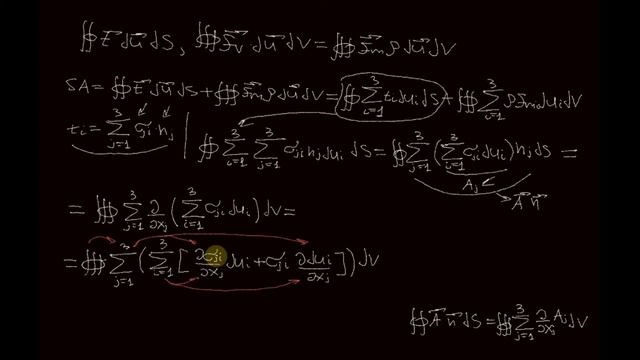 ∯ t⃗ du⃗ dS, ∰ f⃗v du⃗ dV = ∰ f⃗m ρ du⃗ dV
δA = ∯ t⃗ du⃗ dS + ∰ f⃗m ρ du⃗ dV = ∯ ∑_{i=1}^{3} tᵢ duᵢ dS + ∰ ∑_{i=1}^{3} ρ fmᵢ duᵢ dV
tᵢ = ∑_{j=1}^{3} σⱼᵢ nⱼ | ∯ ∑_{i=1}^{3} ∑_{j=1}^{3} σⱼᵢ nⱼ duᵢ dS = ∯ ∑_{j=1}^{3} (∑_{i=1}^{3} σⱼᵢ duᵢ) nⱼ dS =
Aⱼ
A⃗ n⃗
= ∰ ∑_{j=1}^{3} ∂/∂xⱼ (∑_{i=1}^{3} σⱼᵢ duᵢ) dV =
= ∰ ∑_{j=1}^{3} (∑_{i=1}^{3} [∂σⱼᵢ/∂xⱼ duᵢ + σⱼᵢ ∂duᵢ/∂xⱼ]) dV
∯ A⃗ n⃗ dS = ∰ ∑_{j=1}^{3} ∂/∂xⱼ Aⱼ dV